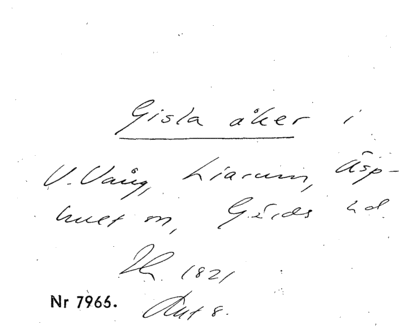 Gisla åker i
V. Vång, Liarum, Äsp-
huet sn, Gärds hd.
1821
Nr 7965. Akt 8.